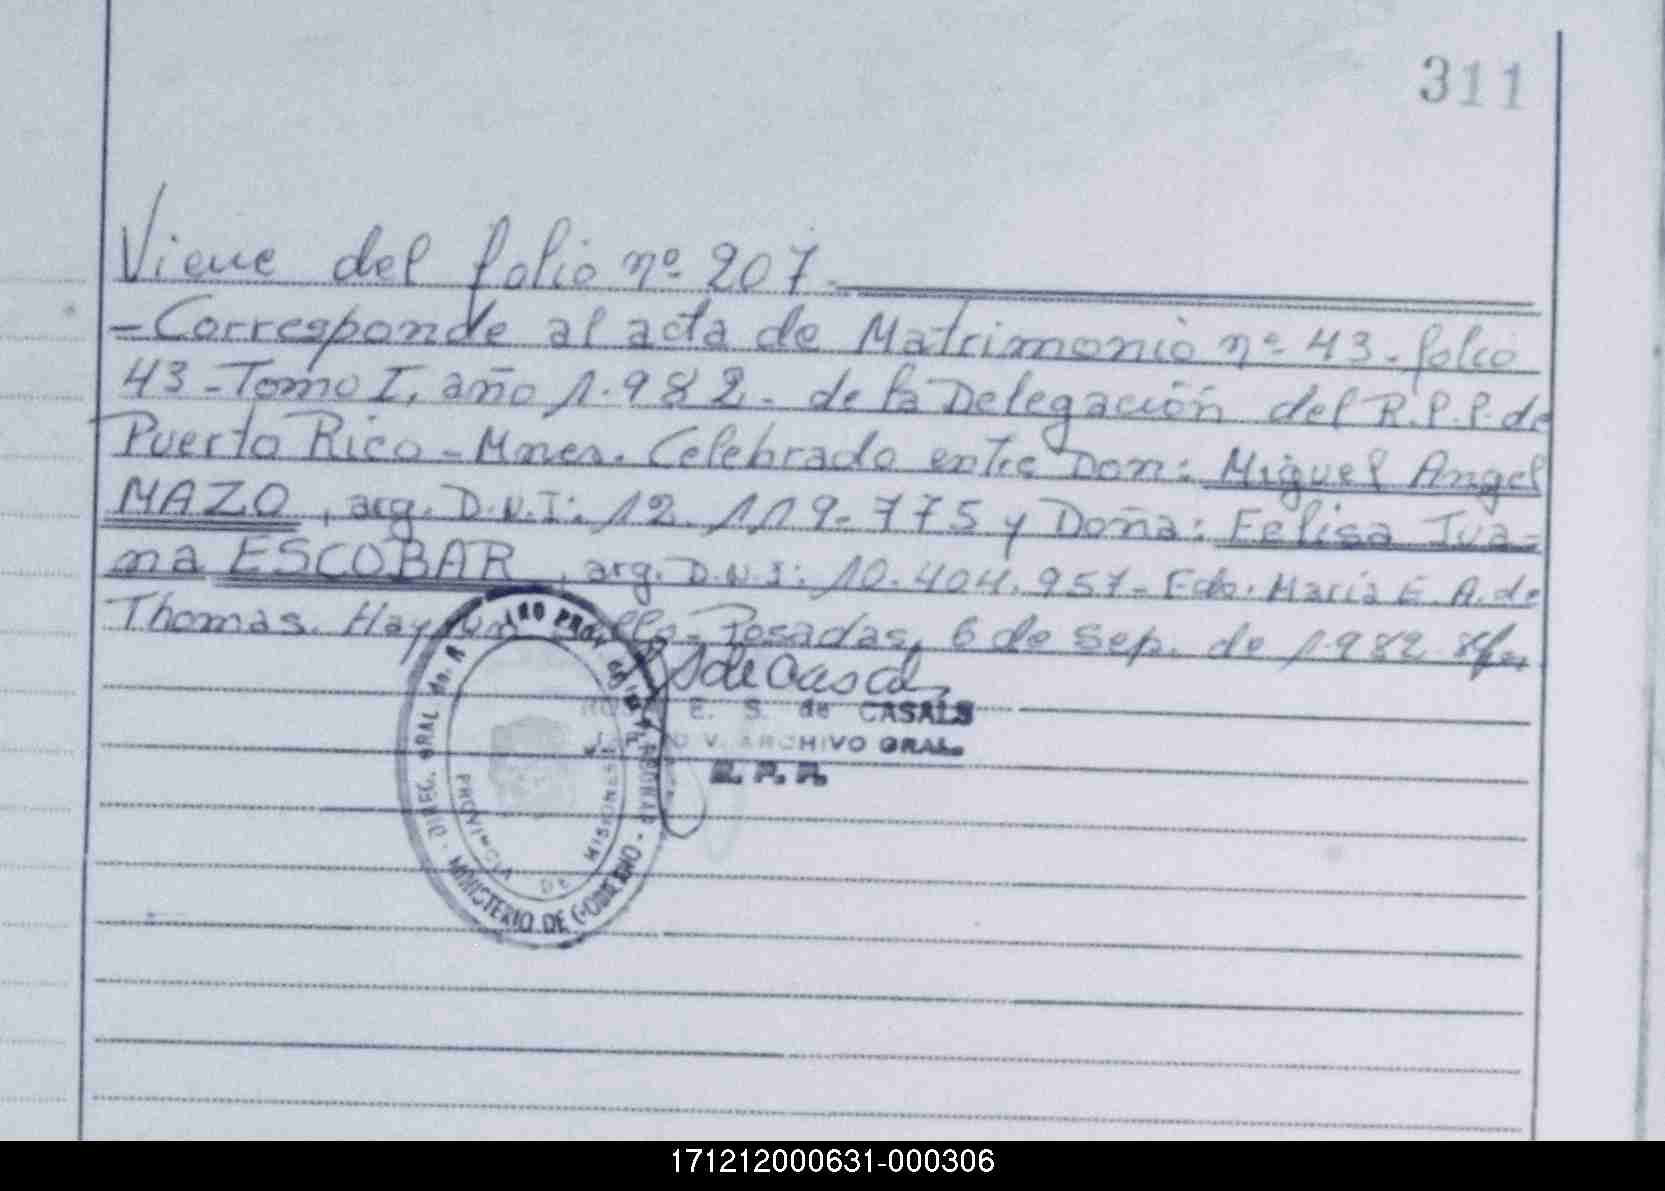 311
Viene del folio nº 207.
- Corresponde al acta de Matrimonio nº 43. folio
43 - Tomo I, año 1.982 - de la Delegación del R.P.P. de
Puerto Rico - Mnes. Celebrado entre Don: Miguel Angel
MAZO, arg. D.N.I: 12.119.775 y Doña: Felisa Jua-
na ESCOBAR, arg. D.N.I: 10.404.957 - Fdo. María E. A. de
Thomas. Hay un sello - Posadas, 6 de Sep. de 1982
E. S. de CASALS
V. ARCHIVO GRAL.
R. P. P.
DIREC. GRAL
MINISTERIO DE GOBIERNO
PROVINCIA DE MISIONES
171212000631-000306